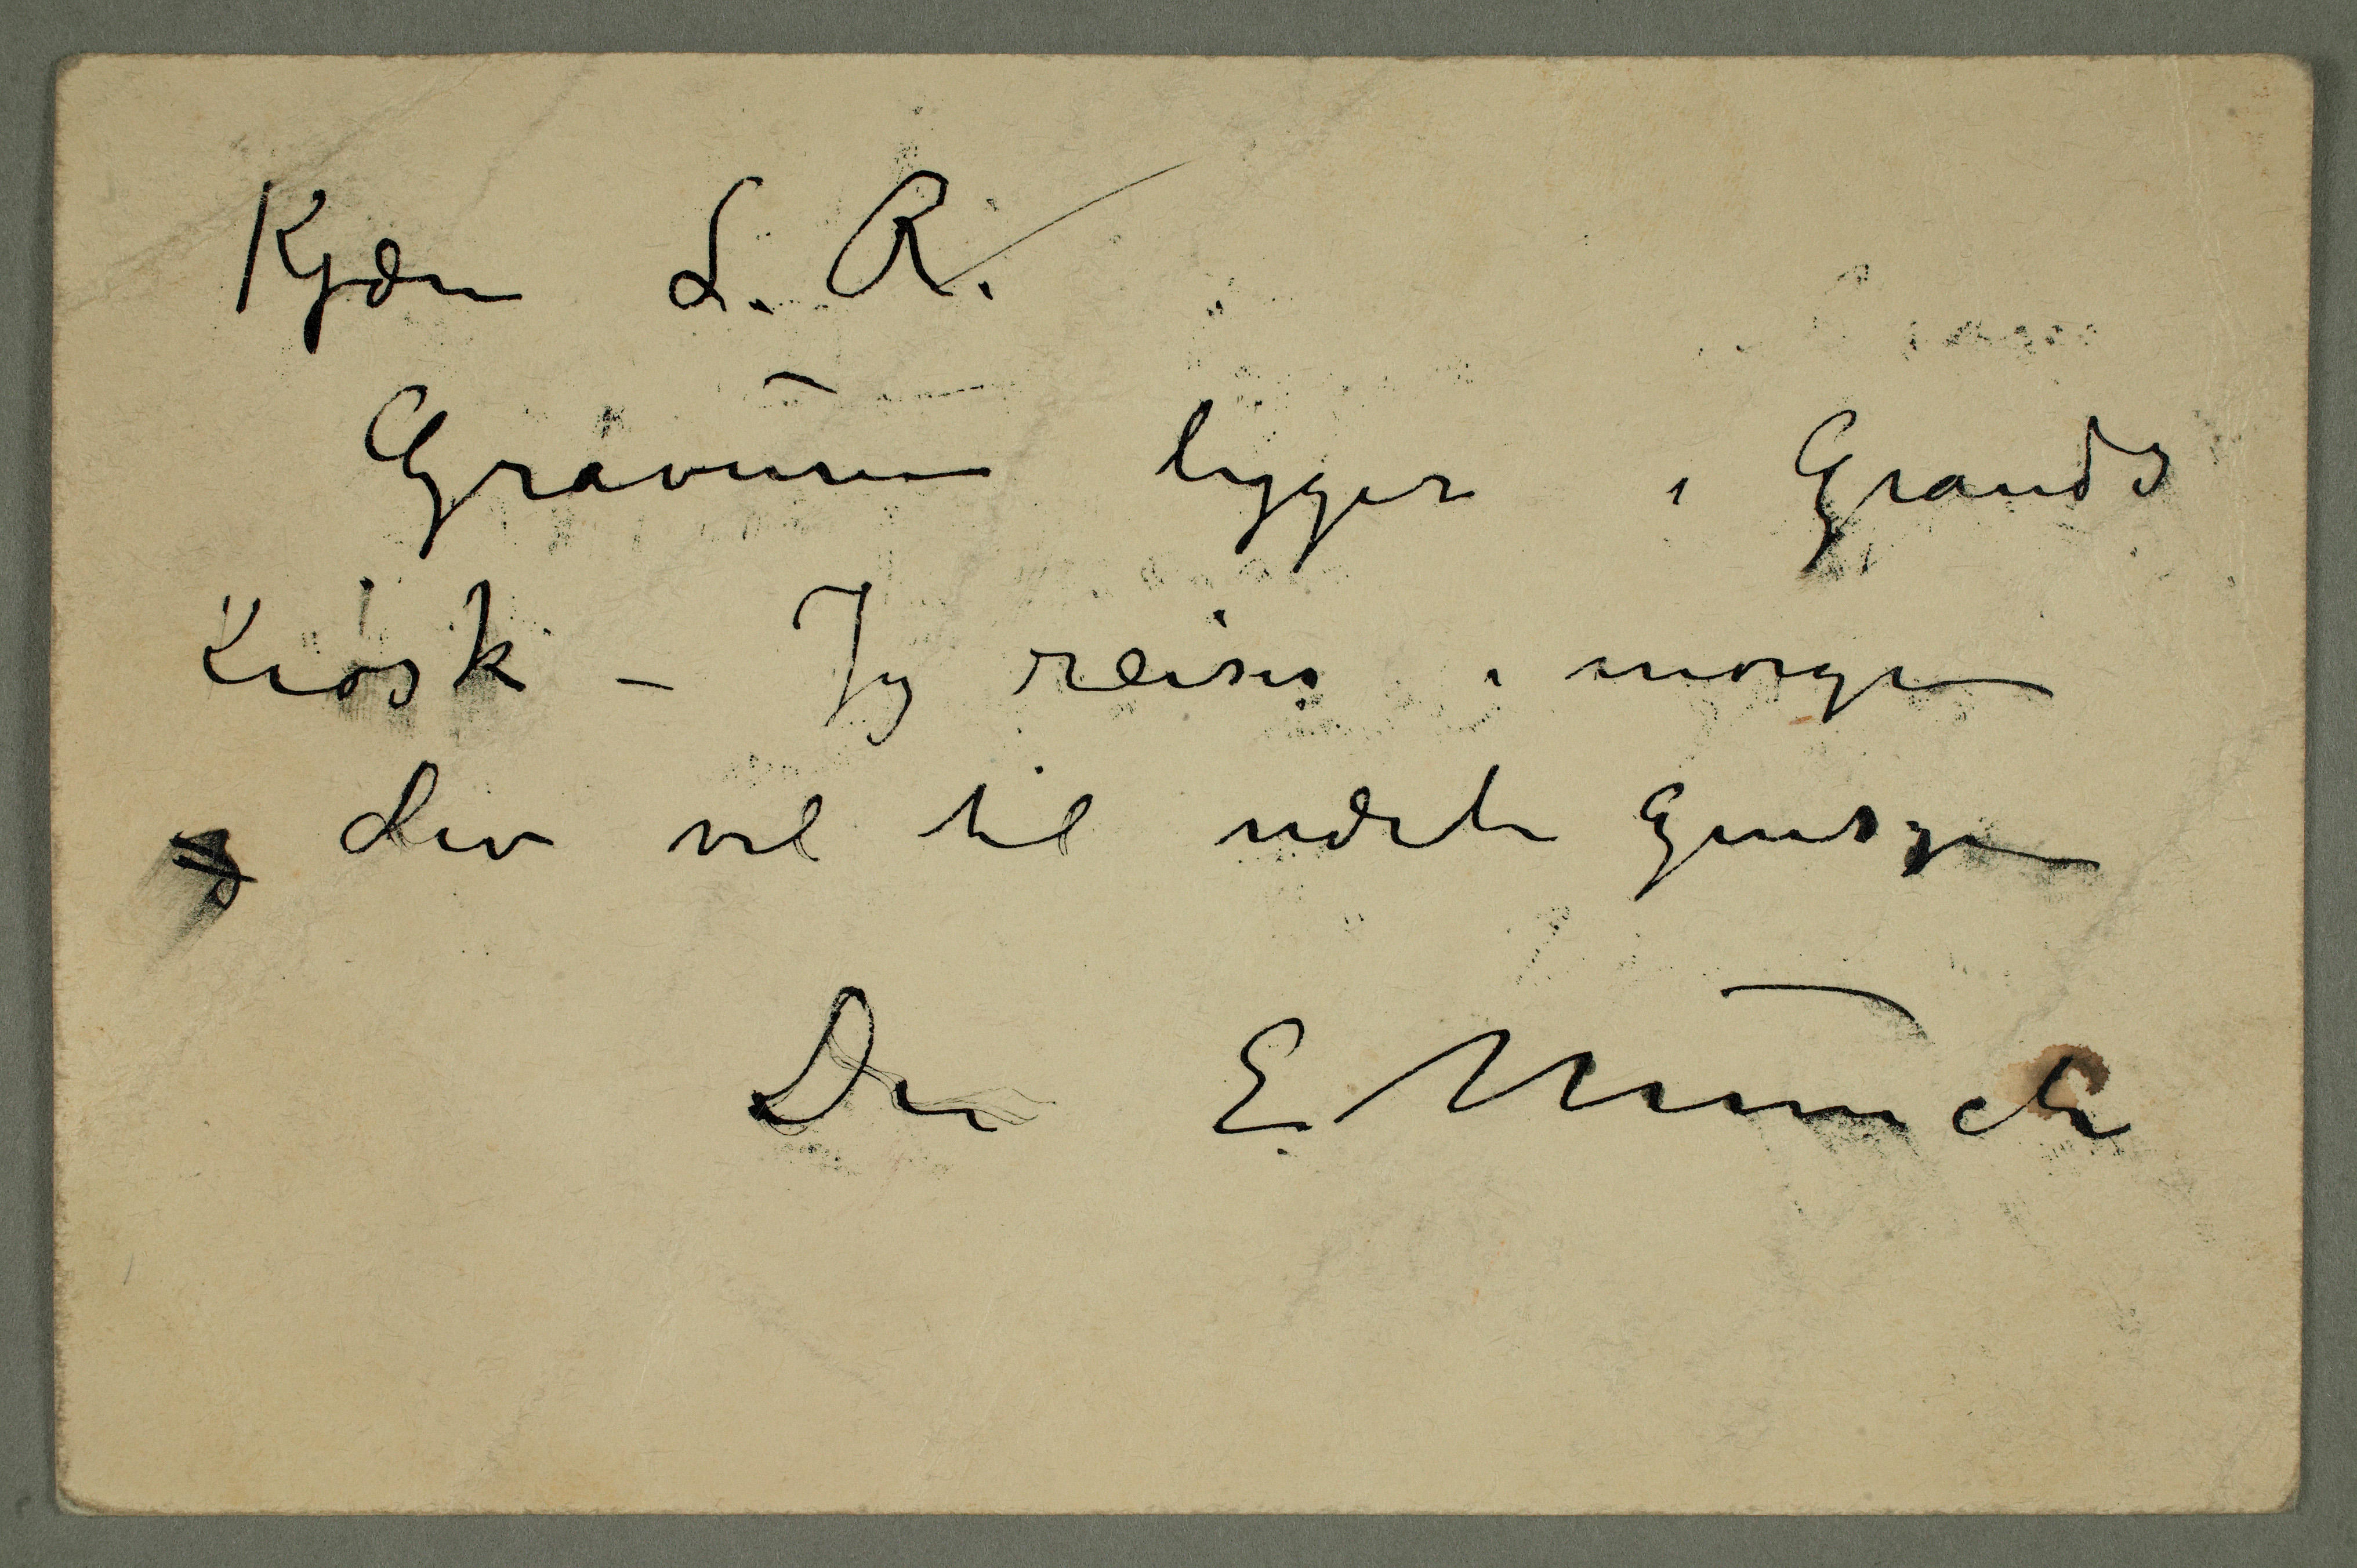 Kjære L. R.
Gravuren ligger i Grands
Kiosk – Jeg reiser i morgen
Lev vel til næste Gensyn
Din E Munch